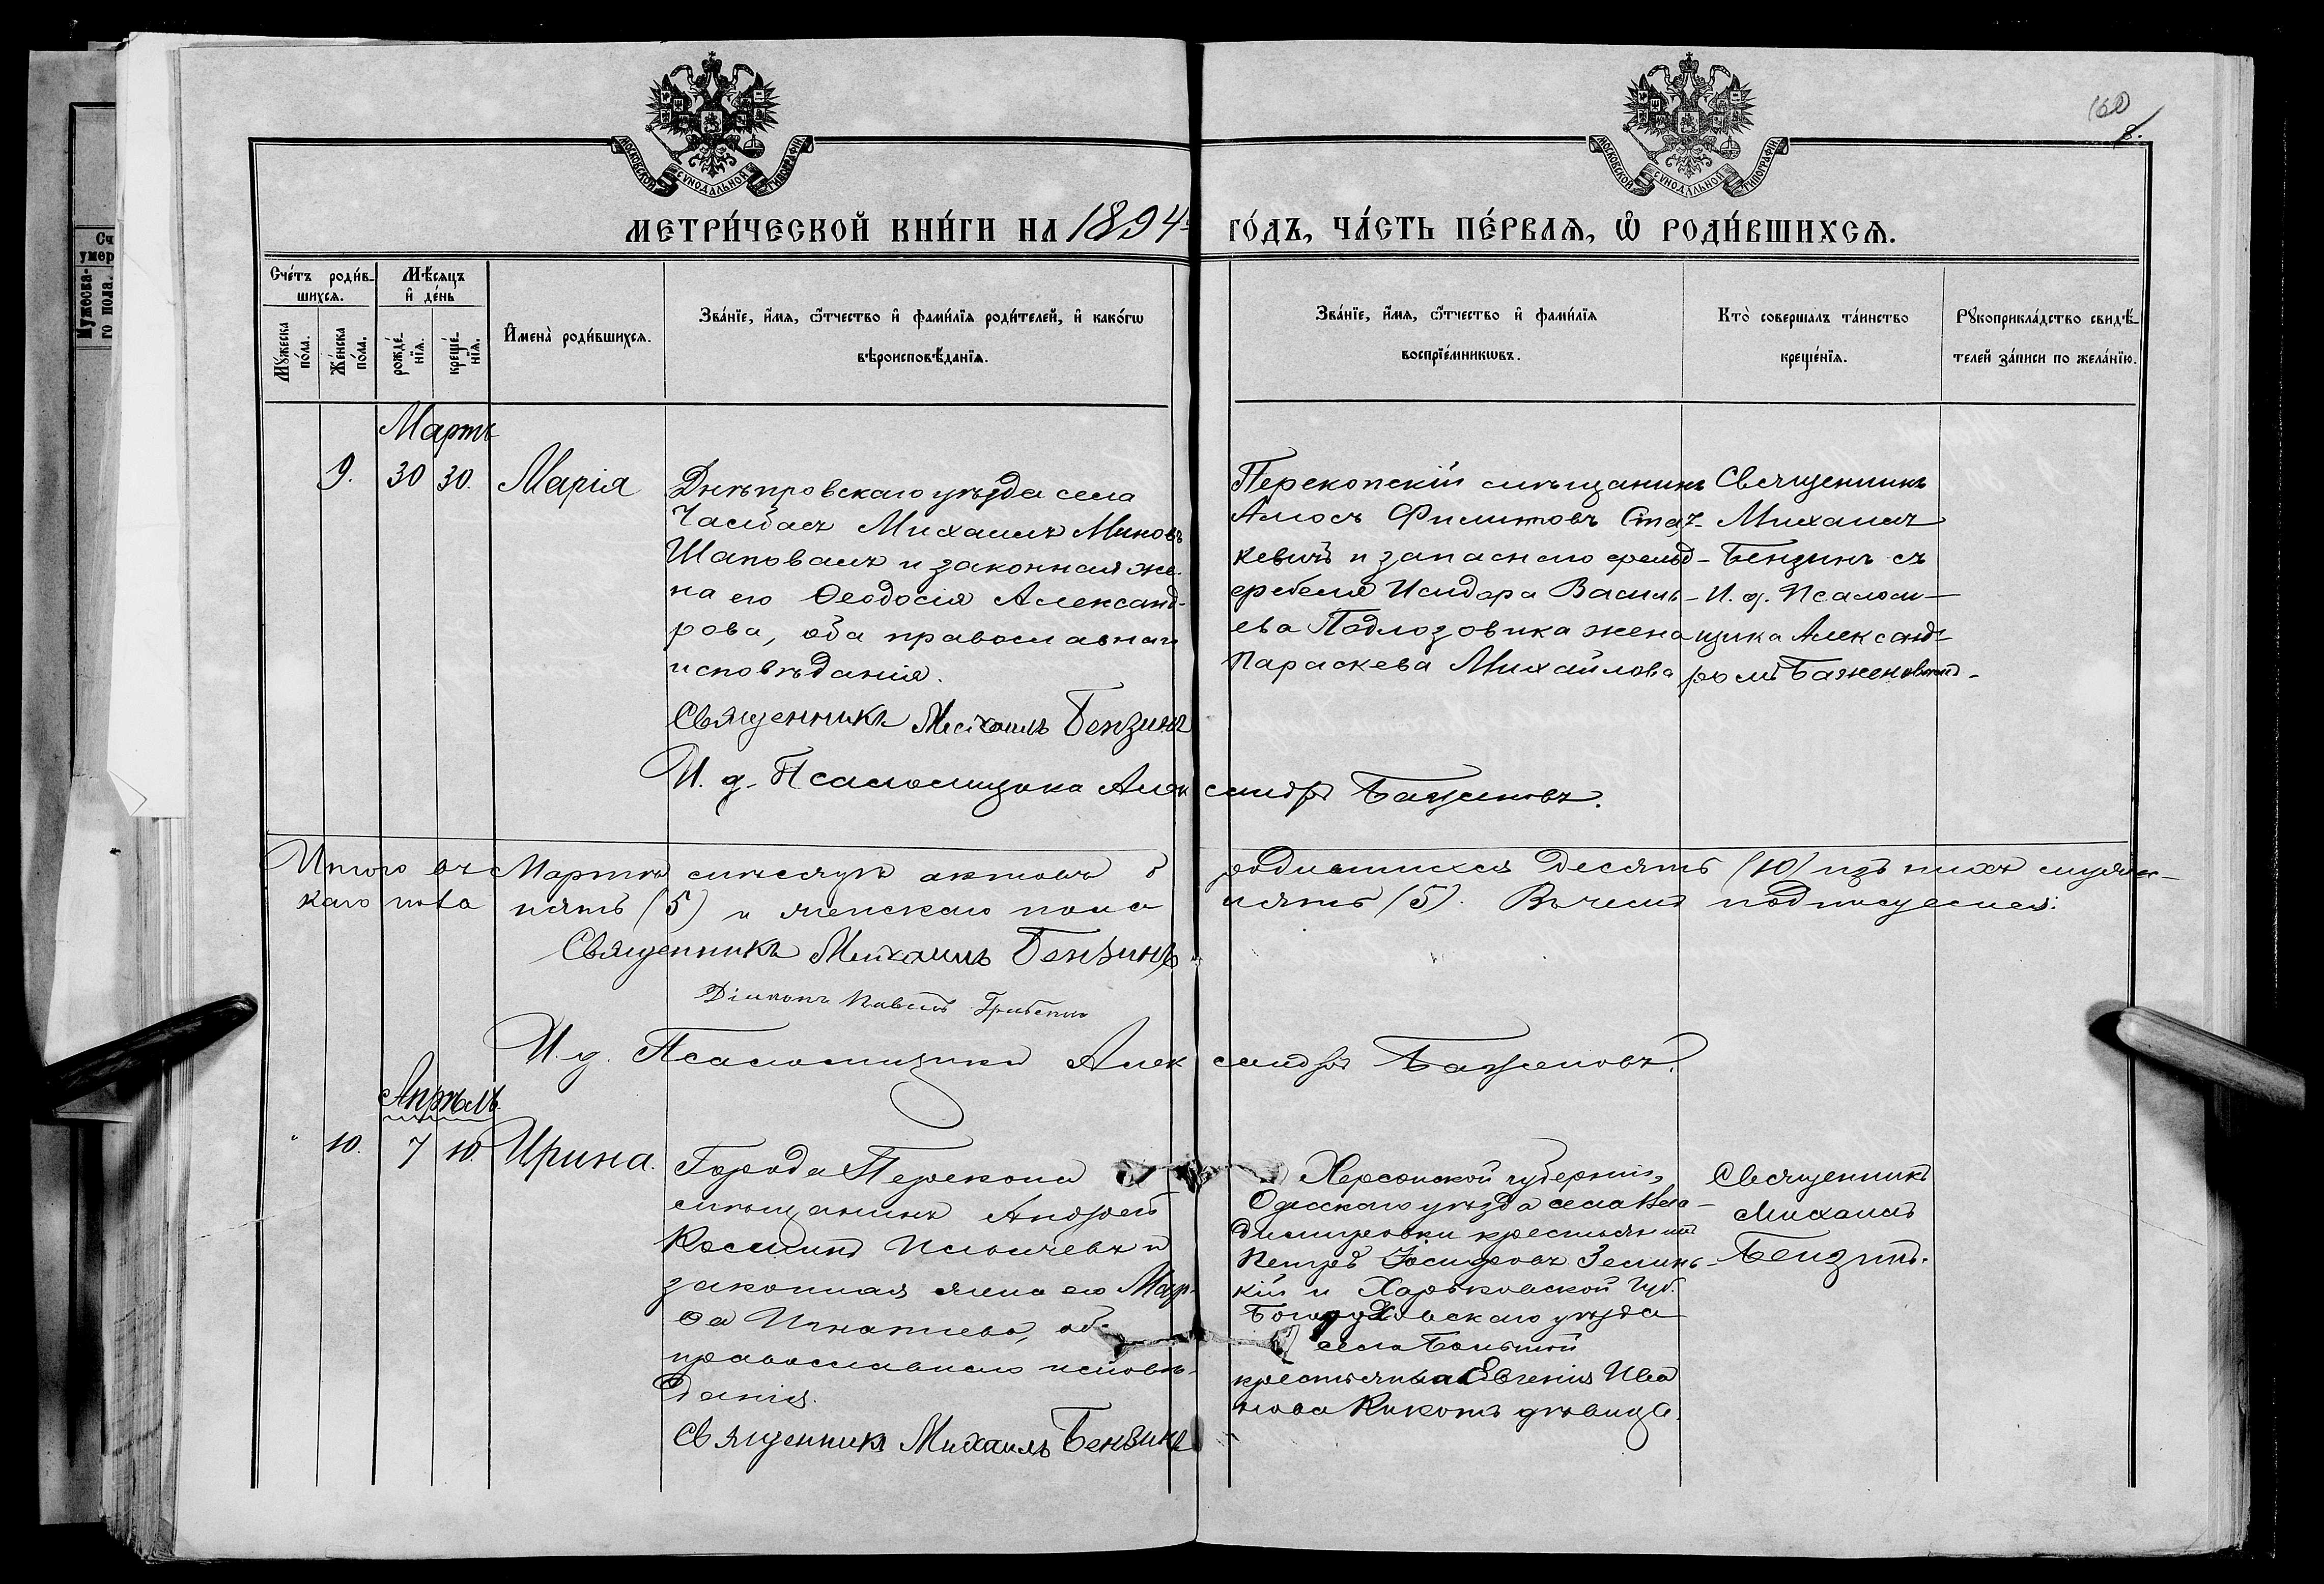 160
8.
МОСКОВСКОЙ СУНОДАЛЬНОЙ ТИПОГРАФІИ
МОСКОВСКОЙ СУНОДАЛЬНОЙ ТИПОГРАФІИ
МЕТРИ́ЧЕСКОЙ КНИ́ГИ НА 1894 ГО́ДЪ, ЧА́СТЬ ПЕ́РВАѦ, Ѡ҆ РОДИ́ВШИХСѦ.
Сче́тъ роди́в-
шихсѧ.
Мѣ́сѧцъ
и҆ де́нь
Мꙋ́жеска
по́ла.
Же́нска
по́ла.
рожде́-
нїѧ.
креще́-
нїѧ.
И҆мена̀ роди́вшихсѧ.
Зва́нїе, и҆́мѧ, ѻ҆́тчество и҆ фами́лїѧ роди́телей, и҆ како́гѡ
вѣроисповѣ́данїѧ.
Зва́нїе, и҆́мѧ, ѻ҆́тчество и҆ фами́лїѧ
воспрїе́мникѡвъ.
Кто̀ совершалъ та́инство
креще́нїѧ.
Рꙋкоприкла́дство свидѣ́-
телей за́писи по жела́нїю.
Мартъ
9.
30
30.
Марія
Днѣпровскаго уѣзда села
Чалбасъ Михаилъ Миновъ
Шаповалъ и законная же-
на его Ѳеодосія Александ-
рова, оба православнаго
исповѣданія.
Священникъ Михаилъ Бензинъ
И. д. Псаломщика Александръ Баженовъ.
Перекопскій мѣщанинъ
Амосъ Филиповъ
кевичъ и запаснаго фельд-
фебеля Исидора Василь-
ева Подлозовика жена
Параскева Михайлова
Священникъ
Михаилъ
Бензинъ съ
И. д. Псалом-
щика Александ-
ромъ Баженовымъ.
Итого въ Мартѣ мѣсяцѣ актовъ о родившихся десять (10) изъ нихъ мужес-
каго пола пять (5) и женскаго пола пять (5). Въ чемъ подписуемся:
Священникъ Михаилъ Бензинъ
Діаконъ Павелъ
И. д. Псаломщика Александръ Баженовъ.
Апрѣль
10.
7
10.
Ирина.
Города Перекопа
мѣщанинъ Андрей
Космин Ильичевъ и
законная жена его Мар-
ѳа Игнатьева, оба
православнаго исповѣ-
данія.
Священникъ Михаилъ Бензинъ
Херсонской губерніи,
Одесскаго уѣзда села Вла-
димировки крестьянинъ
Петръ Іосифовъ Зелинс-
кій и Харьковской Губ.
Богодуховскаго уѣзда
села
крестьянка Евгенія Ива
нова Кикоть дѣвица.
Священникъ
Михаилъ
Бензинъ.
Сч
умер
Мужеска-
го пола.